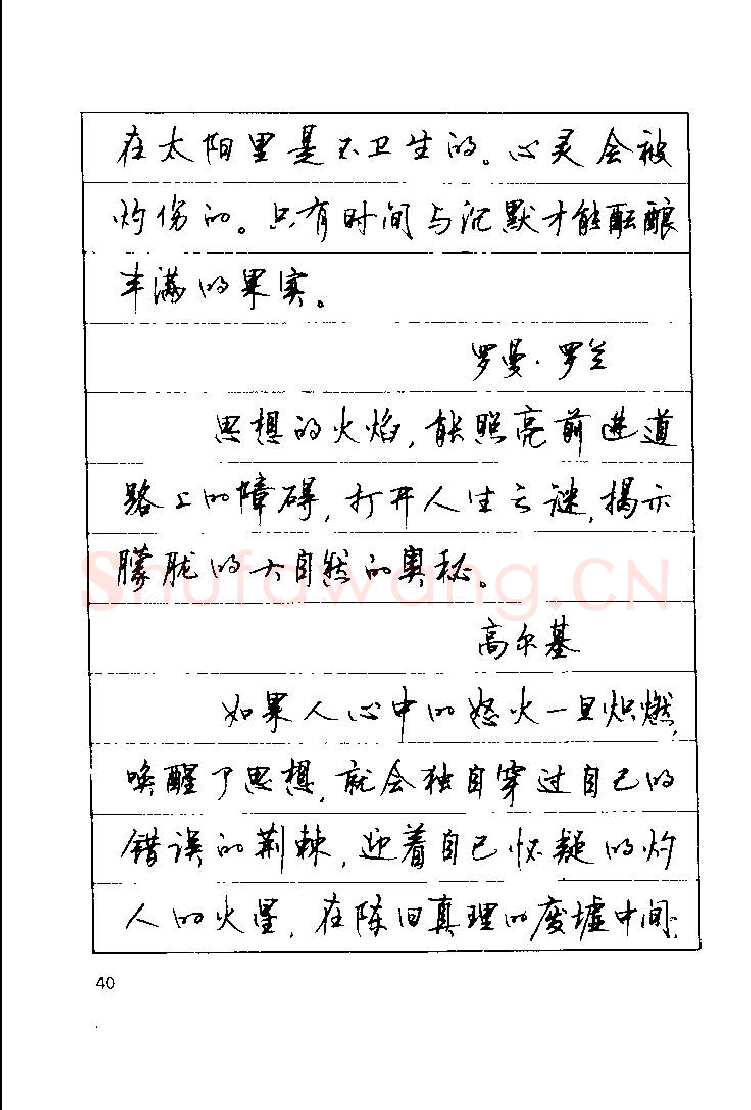 在太阳里是不卫生的。心灵会被
灼伤的。只有时间与沉默才能酝酿
丰满的果实。
罗曼·罗兰
思想的火焰，能照亮前进道
路上的障碍，打开人生之谜，揭示
朦胧的大自然的奥秘。
Shufawang.CN
高尔基
如果人心中的怒火一旦炽燃，
唤醒了思想，就会独自穿过自己的
错误的荆棘，迎着自己怀疑的灼
人的火星，在陈旧真理的废墟中间，
40